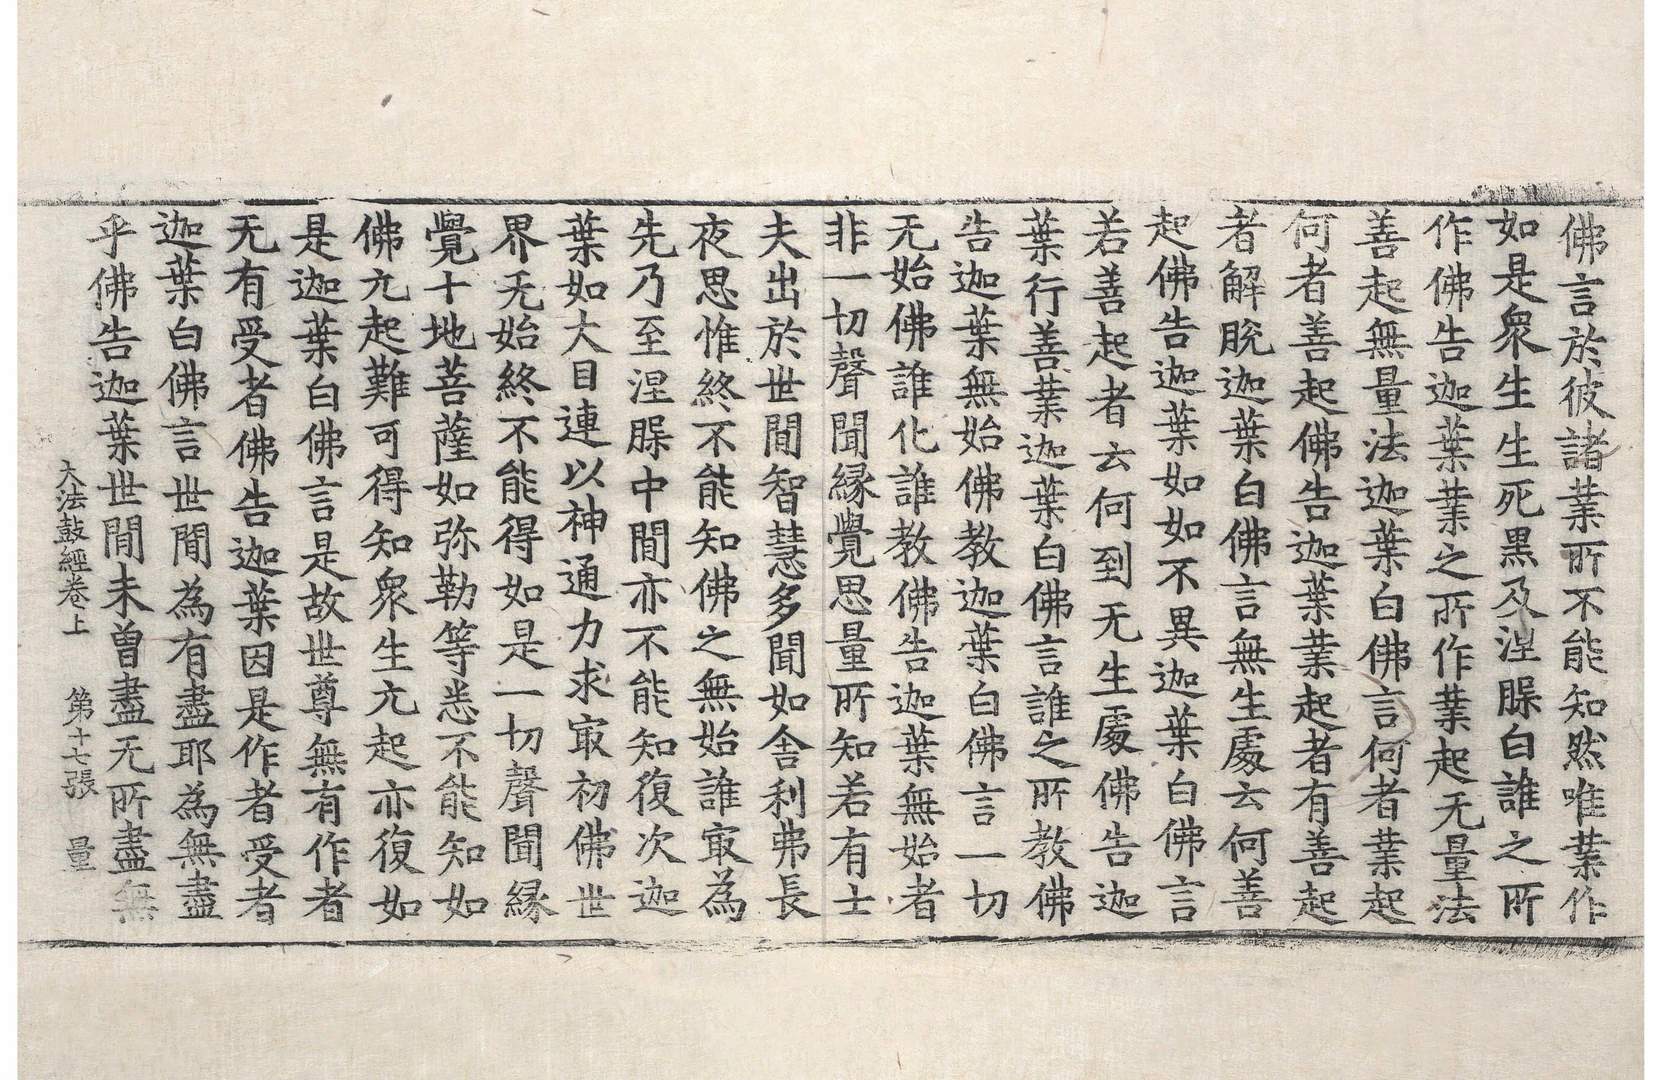 佛言於彼諸業所不能知然唯業作
如是衆生生死黒及涅槃白誰之所
作佛告迦葉業之所作業起无量法
善起無量法迦葉白佛言何者業起
何者善起佛告迦葉業起者有善起
者解脫迦葉白佛言無生處云何善
起佛告迦葉如如不異迦葉白佛言
若善起者云何到无生處佛告迦
葉行善業迦葉白佛言誰之所教佛
告迦葉無始佛教迦葉白佛言一切
无始佛誰化誰教佛告迦葉無始者
非一切聲聞緣覺思量所知若有士
夫出於世間智慧多聞如舍利弗長
夜思惟終不能知佛之無始誰㝡為
先乃至涅槃中間亦不能知復次迦
葉如大目連以神通力求㝡初佛世
界无始終不能得如是一切聲聞緣
覺十地菩薩如弥勒等悉不能知如
佛亢起難可得知衆生亢起亦復如
是迦葉白佛言是故世尊無有作者
无有受者佛告迦葉因是作者受者
迦葉白佛言世間為有盡耶為無盡
乎佛告迦葉世間未曽盡无所盡無
大法鼓經卷上 第十七張 量